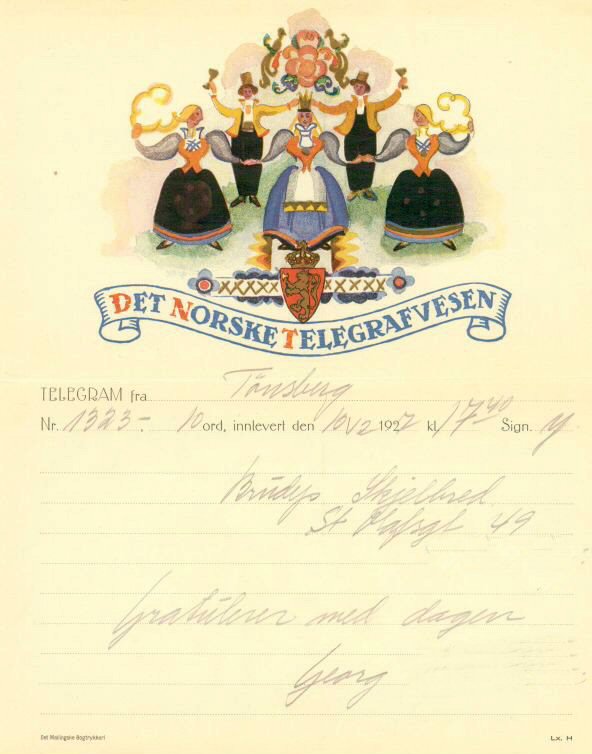 DET NORSKE TELEGRAFVESEN
TELEGRAM fra Tönsberg
Nr. 1323- 10 ord, innlevert den 10/12 1927 kl. 17 40 Sign. y
Brudep Skjelbred
St Olafsgt 49
Gratulerer med dagen
Georg
Det Mallingske Bogtrykkeri Lx. H